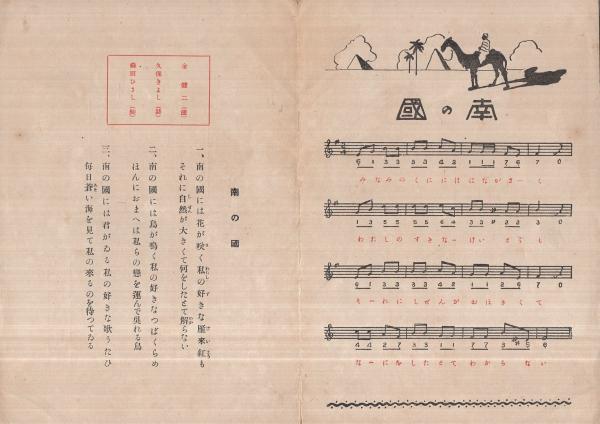 南の國
6 1 3 3 3 4 2 1 1 1 7 6 7 0
みなみのくににははながさーく
1 3 5 5 5 6 4 3 3 2 3 0
わたしのすきなーけいとうも
6 1 3 3 3 4 2 1 1 1 7 6 7 0
そーれにしぜんがおほきくて
4 4 2 7 3 3 1 6 7 7 3 5 6
なーにをしたとてわからない
南の國
一、南の國には花が咲く私の好きな雁來紅も
それに自然が大きくて何をしたとて解らない
二、南の國には鳥が鳴く私の好きなつばくらめ
ほんにおまへは私らの戀を運んで呉れる鳥
三、南の國には君がゐる私の好きな歌うたひ
毎日蒼い海を見て私の來るのを待つてゐる
金健二
久保きよし
ひさし